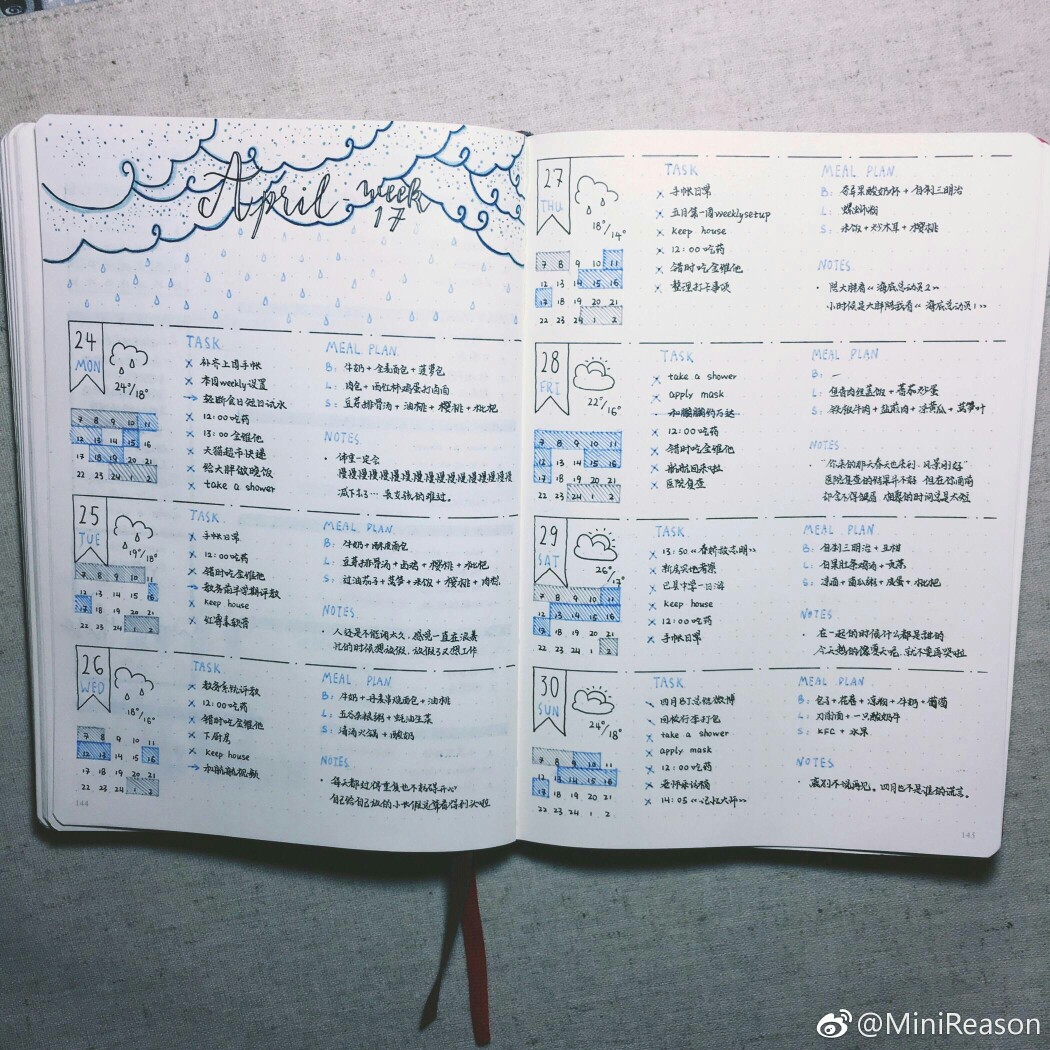 April week
17
24
MON
24°/18°
7 8 9 10 11
12 13 14 15 16
17 18 19 20 21
22 23 24 1 2
TASK
补齐上周手帐
本周weekly设置
轻断食日短日试水
12:00吃药
13:00金维他
天猫超市快递
给大胖做晚饭
take a shower
MEAL PLAN
B: 牛奶+全麦面包+菠萝包
L: 肉包+西红柿鸡蛋打卤面
S: 豆芽排骨汤+油桃+樱桃+枇杷
NOTES
体重一定会
慢慢慢慢慢慢慢慢慢慢慢慢慢慢慢
减下去了…
25
TUE
19°/18°
7 8 9 10 11
12 13 14 15 16
17 18 19 20 21
22 23 24 1 2
TASK
手帐日常
12:00吃药
错时吃金维他
教务前半学期评教
keep house
红枣姜软膏
MEAL PLAN
B: 牛奶+面包
L: 豆芽排骨汤+卤鸡+樱桃+枇杷
S: 过油茄子+莴笋+米饭+樱桃+肉松
NOTES
人还是不能闲太久,感觉一直在浪费
忙的时候想放假,放假了又想工作
26
WED
18°/16°
7 8 9 10 11
12 13 14 15 16
17 18 19 20 21
22 23 24 1 2
TASK
教务系统评教
12:00吃药
错时吃金维他
下厨房
keep house
航航视频
MEAL PLAN
B: 牛奶+丹麦吊龙面包+油桃
L: 五谷杂粮粥+蚝油生菜
S: 清汤火锅+酸奶
NOTES
每天都过得重复也不觉得开心
自己给自己放的小长假这算看得到头啦
144
27
THU
18°/14°
7 8 9 10 11
12 13 14 15 16
17 18 19 20 21
22 23 24 1 2
TASK
手帐日常
五月第一周weekly setup
keep house
12:00吃药
错时吃金维他
整理打卡事项
MEAL PLAN
B: 奇异果酸奶杯+吞拿三明治
L: 螺蛳粉
S: 米饭+炒木耳+樱桃
NOTES
陪大胖看《海底总动员2》
小时候是大胖陪我看《海底总动员1》
28
FRI
22°/16°
7 8 9 10 11
12 13 14 15 16
17 18 19 20 21
22 23 24 1 2
TASK
take a shower
apply mask
和鹏鹏约万达
12:00吃药
错时吃金维他
航航回来啦
医院复查
MEAL PLAN
B: —
L: 鱼香肉丝盖饭+番茄炒蛋
S: 铁板牛肉+盐煎肉+凉黄瓜+莴笋叶
NOTES
“你来的那天春天也来到,风景刚好”
医院复查的结果并不好 但在你面前
却舍不得皱眉 相聚的时间总是太短
29
SAT
26°/17°
7 8 9 10 11
12 13 14 15 16
17 18 19 20 21
22 23 24 1 2
TASK
13:50《春娇救志明》
新房实地考察
巴县中学一日游
keep house
12:00吃药
手帐日常
MEAL PLAN
B: 吞拿三明治+丑柑
S: 凉面+南瓜粥+皮蛋+枇杷
NOTES
在一起的时候什么都是甜的
今天热的像夏天呢,就不要再哭啦
30
SUN
24°/18°
7 8 9 10 11
12 13 14 15 16
17 18 19 20 21
22 23 24 1 2
TASK
四月BJ总结微博
回校行李打包
take a shower
apply mask
12:00吃药
老师采访稿
14:05《记忆大师》
MEAL PLAN
B: 包子+花卷+凉粉+牛奶+葡萄
L: 刀削面+一只酸奶牛
S: KFC+水果
NOTES
离别不说再见。四月也不是谁的谎言。
145
@MiniReason